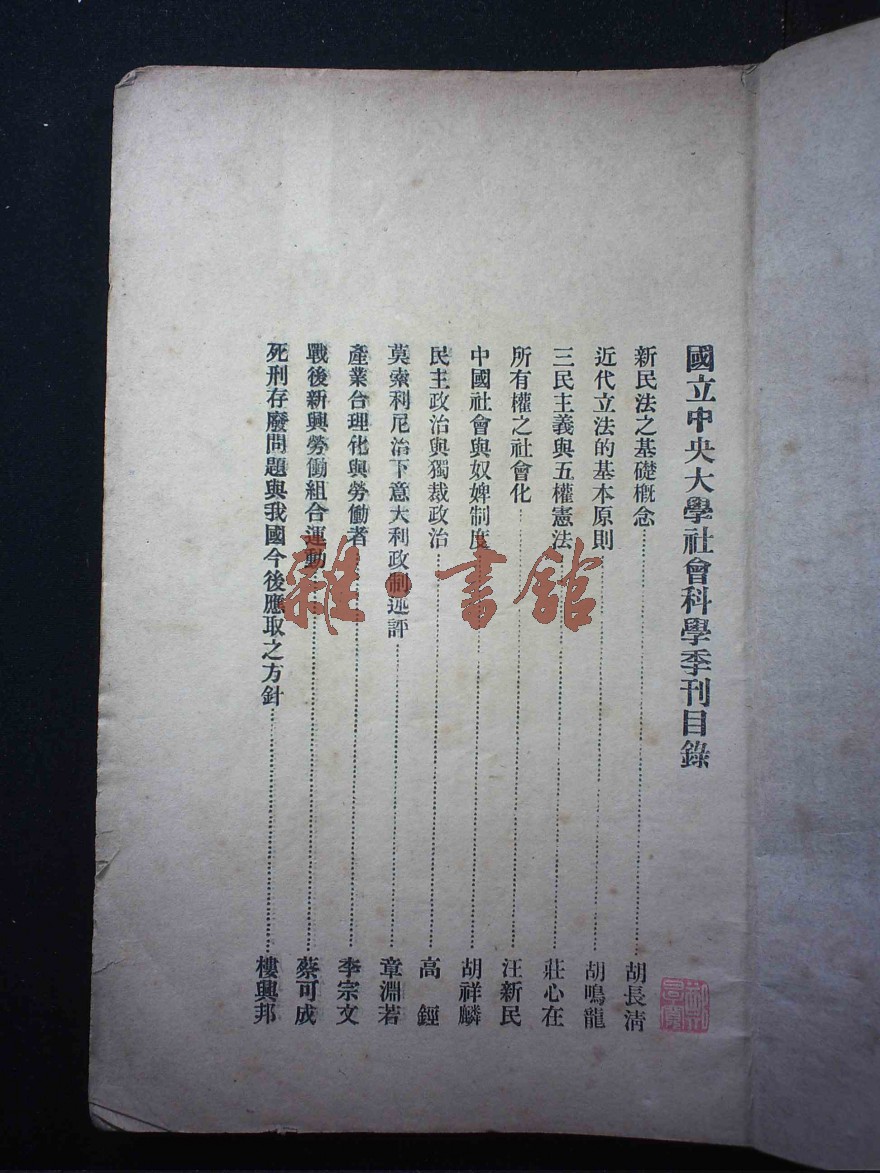 國立中央大學社會科學季刊目錄
新民法之基礎概念……胡長清
近代立法的基本原則……胡鳴龍
三民主義與五權憲法……莊心在
所有權之社會化……汪新民
中國社會與奴婢制度……胡祥麟
民主政治與獨裁政治……高 經
莫索利尼治下意大利政制述評……章淵若
產業合理化與勞働者……李宗文
戰後新興勞働組合運動……蔡可成
死刑存廢問題與我國今後應取之方針……樓興邦
雜·書館